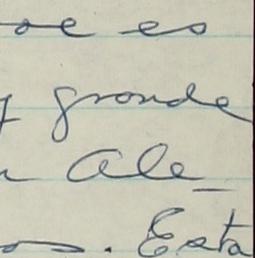 es
grande
Ale_
os. Esta